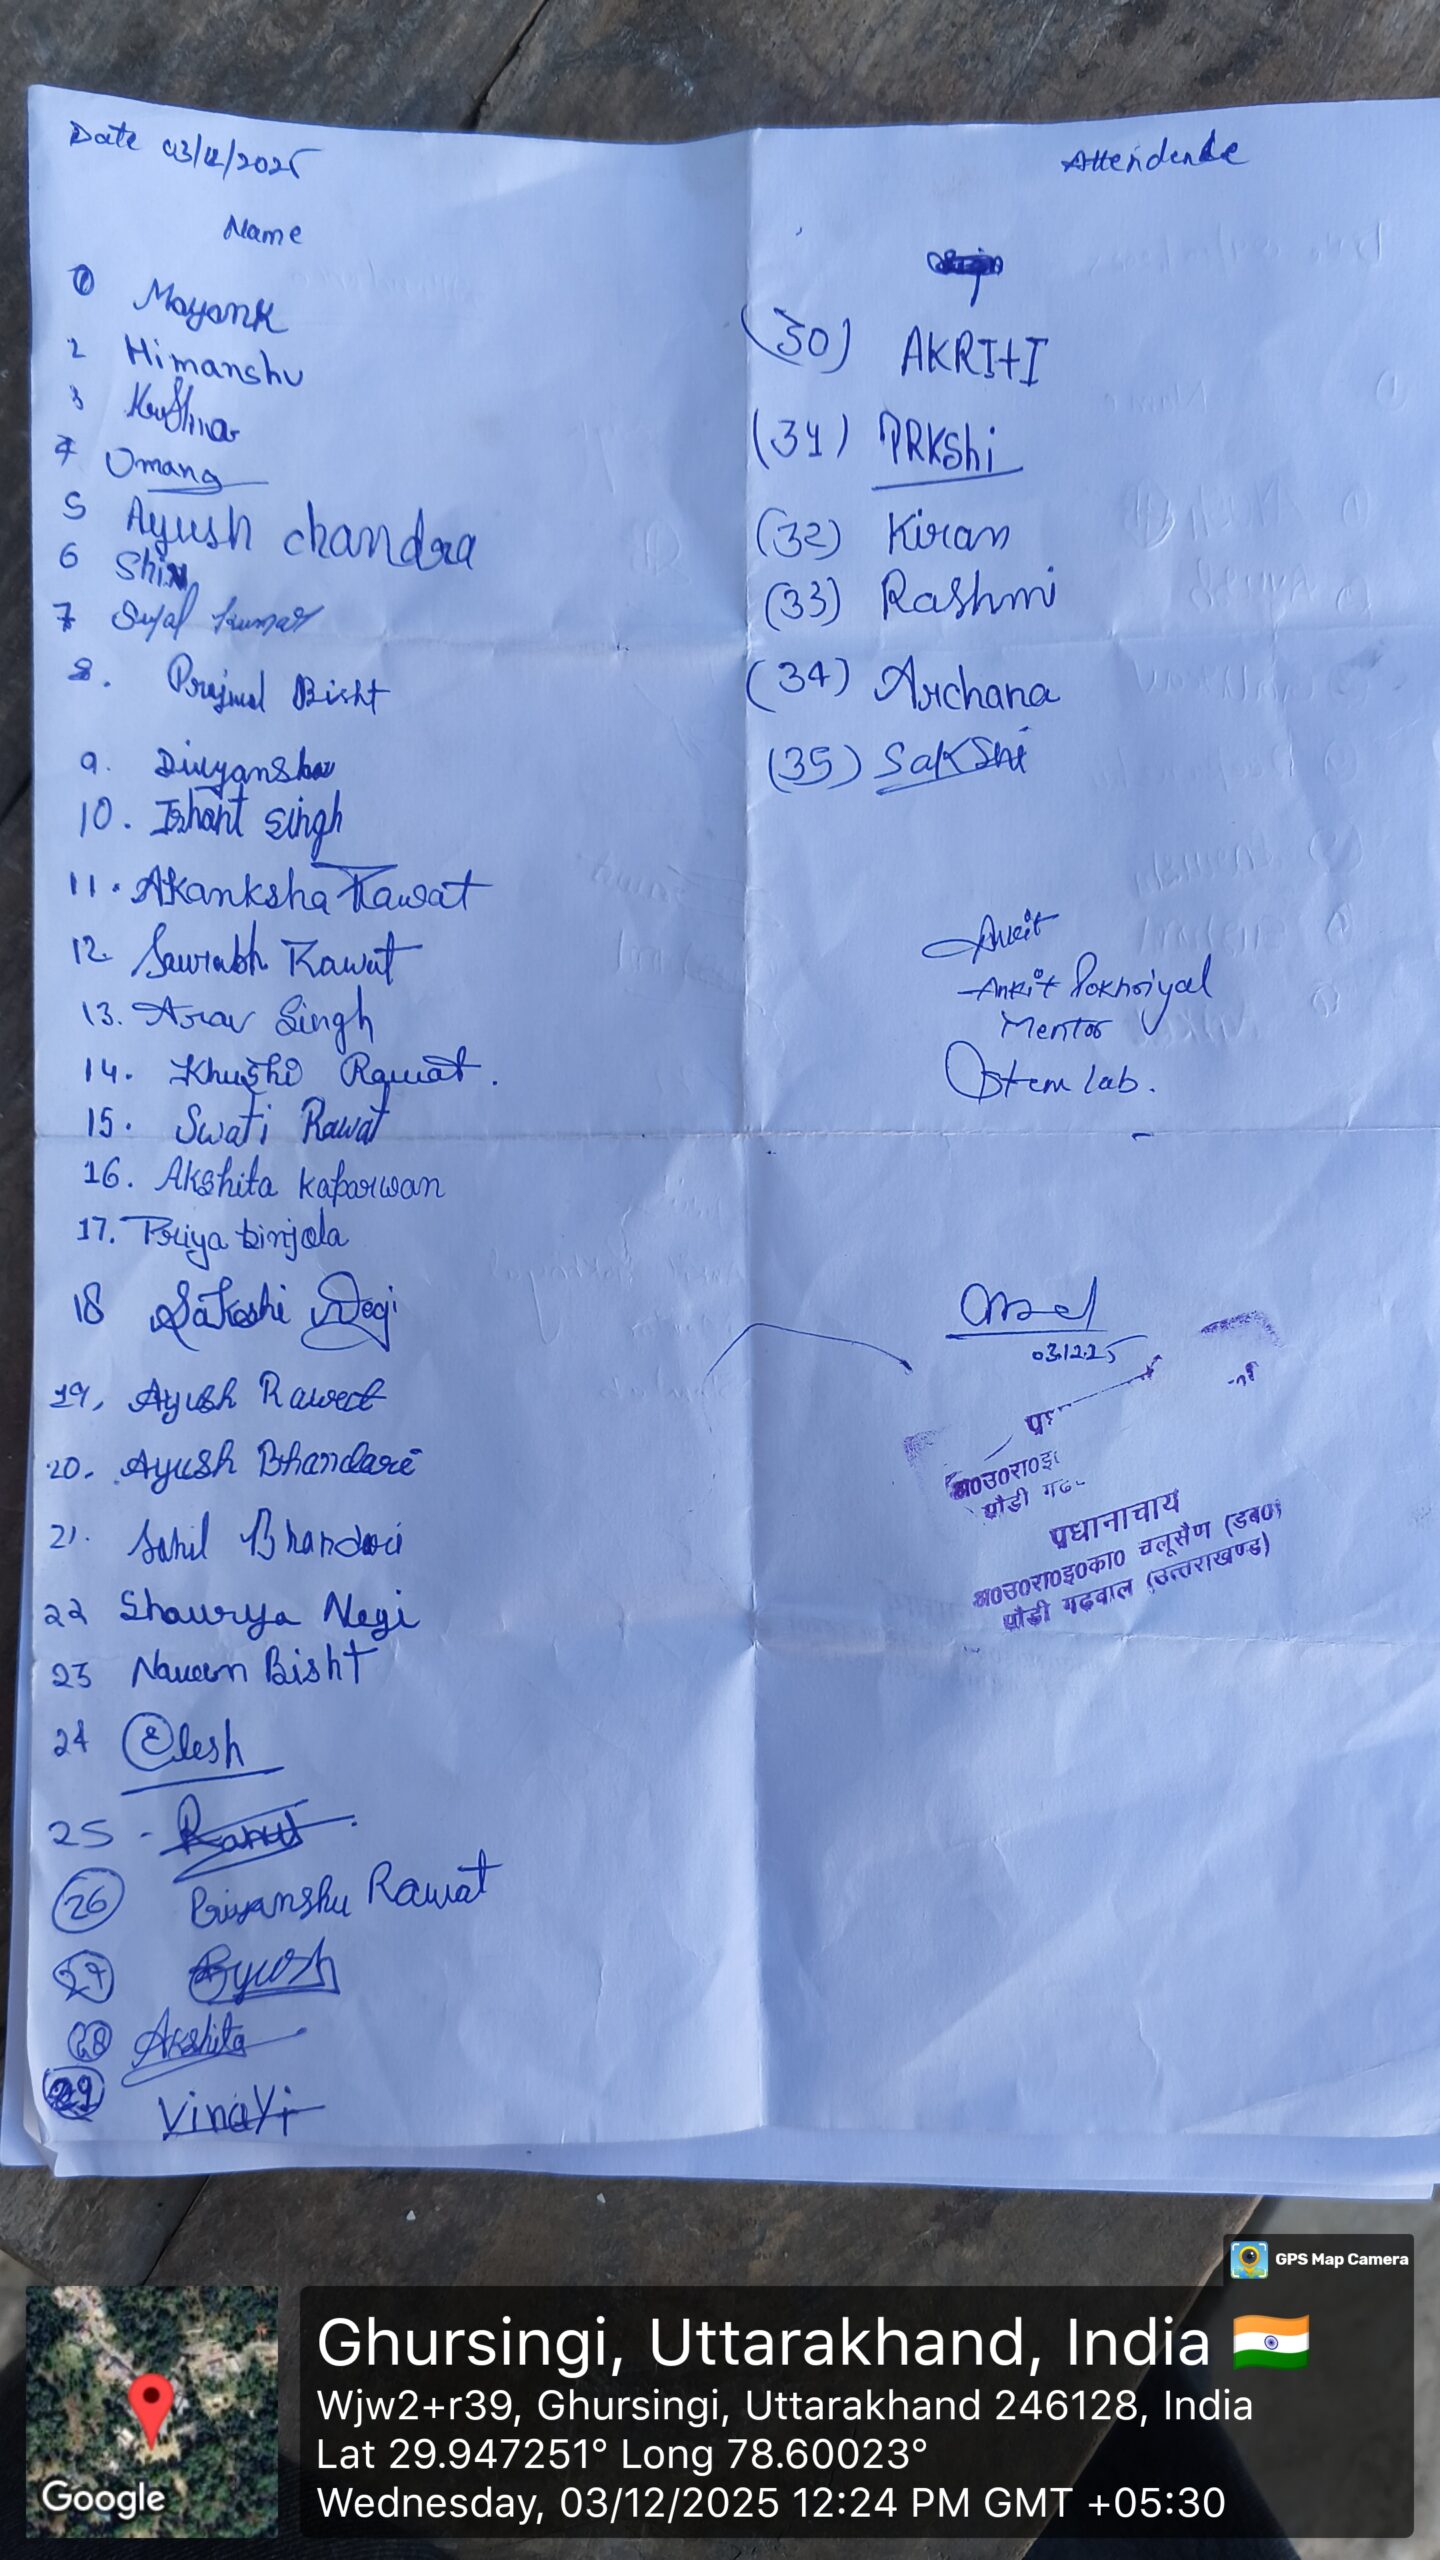 Date 03/12/2025
Attendence
Name
1 Mayank
2 Himanshu
3 Krushna
4 Umang
5 Ayush chandra
6 Shiv
7 Sujal kumar
8. Prajwal Bisht
9. Divyanshu
10. Ishant singh
11. Akanksha Rawat
12. Saurabh Rawat
13. Arav Singh
14. Khushi Rawat.
15. Swati Rawat
16. Akshita kaparwan
17. Priya binjola
18 Sakshi Negi
19, Ayush Rawat
20. Ayush Bhandari
21. Sahil Bhandari
22 Shaurya Negi
23 Naveen Bisht
24 Elesh
25 -
26 Priyanshu Rawat
27 Ayush
28 Akshita
29 Vinayi
(30) AKRItI
(31) PRKShi
(32) Kiran
(33) Rashmi
(34) Archana
(35) SakShi
Ankit
Ankit Pokhriyal
Mentor
Stem lab.
03.12.25
अ०उ०रा०इ०
पौड़ी गढ़
प्रधानाचार्य
अ०उ०रा०इ०का० चलूसैण (डब०)
पौड़ी गढ़वाल (उत्तराखण्ड)
GPS Map Camera
Google
Ghursingi, Uttarakhand, India
Wjw2+r39, Ghursingi, Uttarakhand 246128, India
Lat 29.947251° Long 78.60023°
Wednesday, 03/12/2025 12:24 PM GMT +05:30